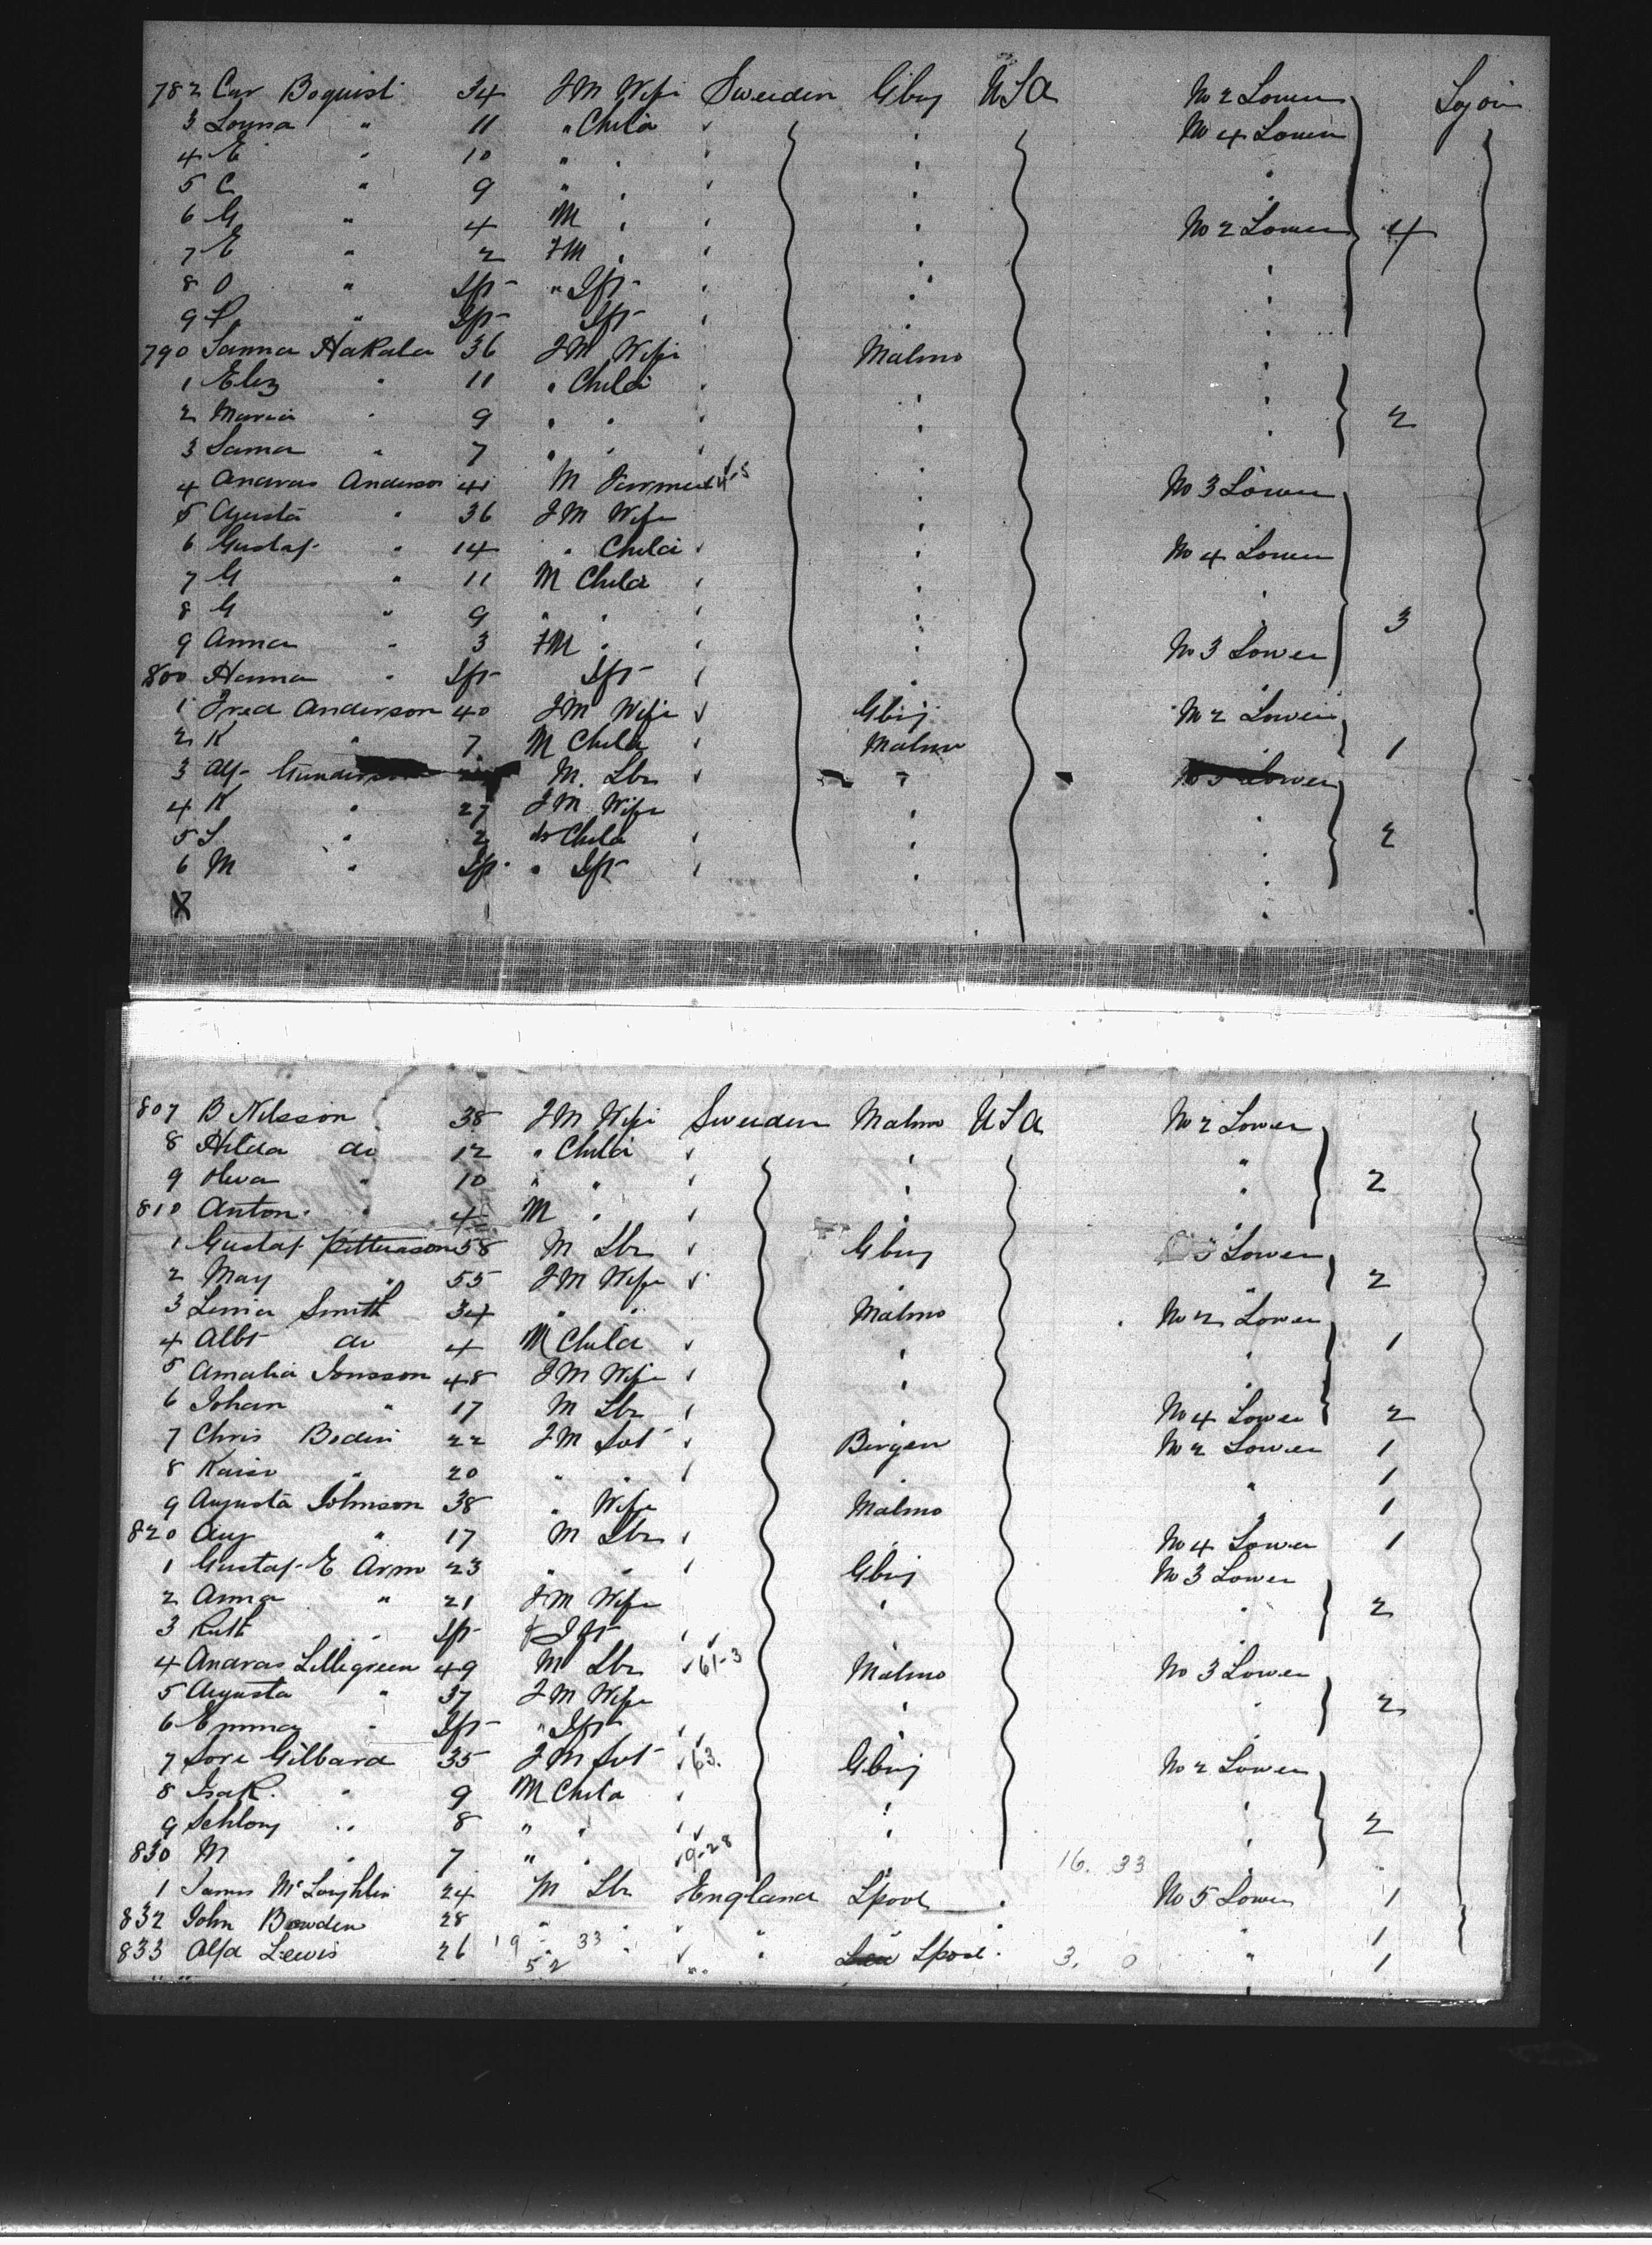 782 Car Boquist 34 FM Wife Sweden Gbug USA No 2 Lower Sojoin
3 Lovisa " 11 " Child No 4 Lower
4 E " 10 " "
5 C " 9 " "
6 G " 4 M " No 2 Lower 4
7 E " 2 FM "
8 O " Ift " Ift
9 " Ift Ift
790 Sanna Hakala 36 FM Wife Malmo
1 Eliz " 11 " Child
2 Maria " 9 " " 2
3 Sanna " 7 " "
4 Andras Anderson 41 M Farmer No 3 Lower
5 Agusta " 36 FM Wife
6 Gustaf " 14 " Child No 4 Lower
7 G " 11 M Child
8 G " 9 " " 3
9 Anna " 3 FM " No 3 Lower
800 Hanna " Ift Ift
1 Fred Anderson 40 FM Wife Gbug No 2 Lower
2 K " 7 M Child Malmo 1
3 Alf M. Lbr " Lower
4 K " 27 FM Wife
5 S " 2 do Child 2
6 M " Ift " Ift
807 B Nilsson 38 FM Wife Sweden Malmo USA No 2 Lower
8 Hilda do 12 " Child "
9 Olva " 10 " " " 2
810 Anton " 4 M "
1 Gustaf Petterson 58 M Lbr Gbug 3 Lower
2 May " 55 FM Wife " 2
3 Lenia Smith 34 " " Malmo No 2 Lower
4 Albt do 4 M Child 1
5 Amalia Jonsson 48 FM Wife
6 Johan " 17 M Lbr No 4 Lower 2
7 Chris Boden 22 FM Svt Bergen No 2 Lower 1
8 Kaisa " 20 " " 1
9 Augusta Johnson 38 " Wife Malmo " 1
820 Aug " 17 M Lbr No 4 Lower 1
1 Gustaf E Arm 23 " " Gbug No 3 Lower
2 Anna " 21 FM Wife 2
3 Ruth " Ift F Ift
4 Andras Lilligreen 49 M Lbr 61-3 Malmo No 3 Lower
5 Augusta " 37 FM Wife 2
6 Emma " Ift " Ift
7 Sore Gilbard 35 FM Svt 63. Gbug No 2 Lower
8 Isak " 9 M Child
9 Schlony " 8 " " 2
830 M " 7 " " 9-28 16. 33
1 James McLoughlin 24 M Lbr England Lpool No 5 Lower 1
832 John Bowden 28 " " " " 1
833 Alfd Lewis 26 19 33 52 " Lpool 3. 0 " 1